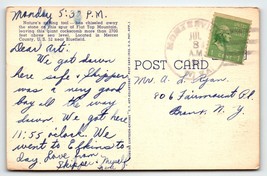 Monday 5:30 P.M.
Nature's spilling tool — has chiseled away
the stone on this spot of Flat Top Mountain,
leaving this giant rockscrom more than 3700
feet above sea level. Located in Mercer
County, U.S. 52 near Bluefield.
Dear Art:
We got down
here safe & Skipper
was a very good
boy all the way
down. We got here
11:55 o'clock. We
went to Elkins to
day. Love from
Skipper. Myself
POST CARD
JUL
8
Mr. A. L. Ryan
906 Fairmount Pl
Bronx, N.Y.